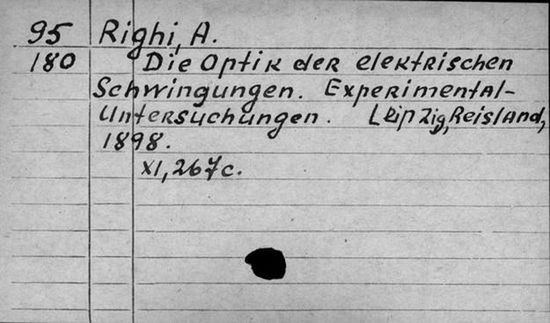 95 Righi, A.
180 Die Optik der elektrischen
Schwingungen. Experimental-
Untersuchungen. Leipzig, Reisland,
1898.
XI, 267c.